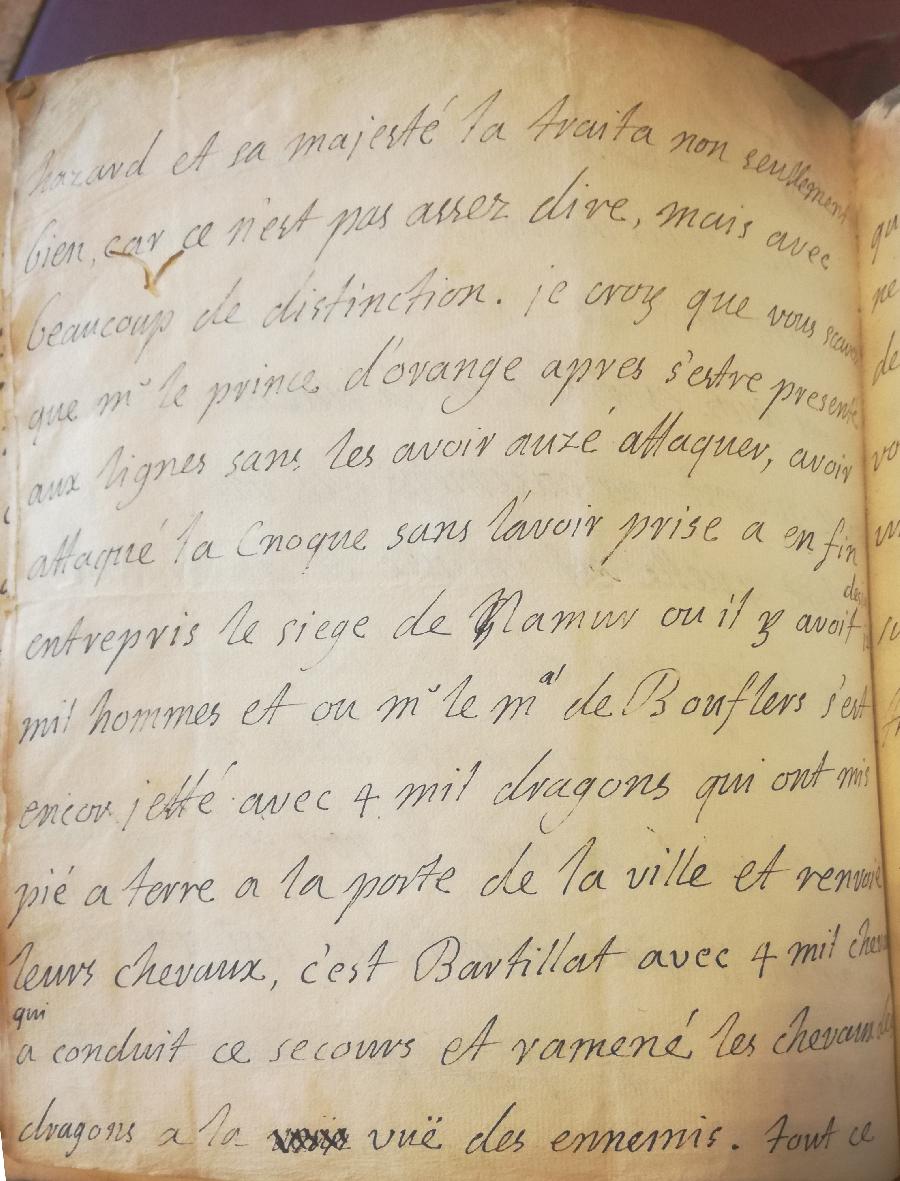 hazard et sa majesté la traita non seullement
bien, car ce n'est pas assez dire, mais avec
beaucoup de distinction. je croy que vous scavez
que mr le prince d'orange apres s'estre presenté
aux lignes sans les avoir auzé attaquer, avoir
attaqué la Cnoque sans l'avoir prise a en fin
entrepris le siege de Namur ou il y avoit des
mil hommes et ou mr le mal de Bouflers s'est
encor jetté avec 4 mil dragons qui ont mis
pié a terre a la porte de la ville et renvoié
leurs chevaux, c'est Bartillat avec 4 mil
qui
a conduit ce secours et ramené les chevaux
dragons a la vuë des ennemis. tout ce